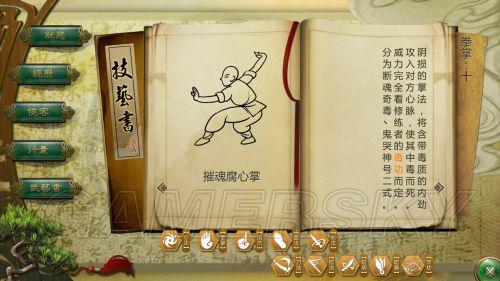 狀態
經歷
俠客
行囊
武藝書
技藝書
摧魂腐心掌
拳掌：十
阴损的掌法，将含带毒质的内劲
攻入对方心脉，使其中毒而死。
威力完全看修练者的毒功而定，
分为断魂奇毒、鬼哭神号二式。
GAMERSKY